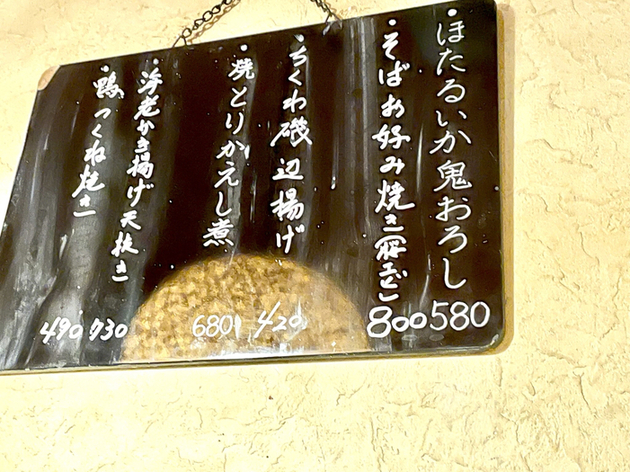 ・ほたるいか鬼おろし 580
・そばお好み焼き(桜えび) 800
・ちくわ磯辺揚げ 420
・焼とりかえし煮 680
・海老かき揚げ天抜き 730
・鴨つくね焼き 490